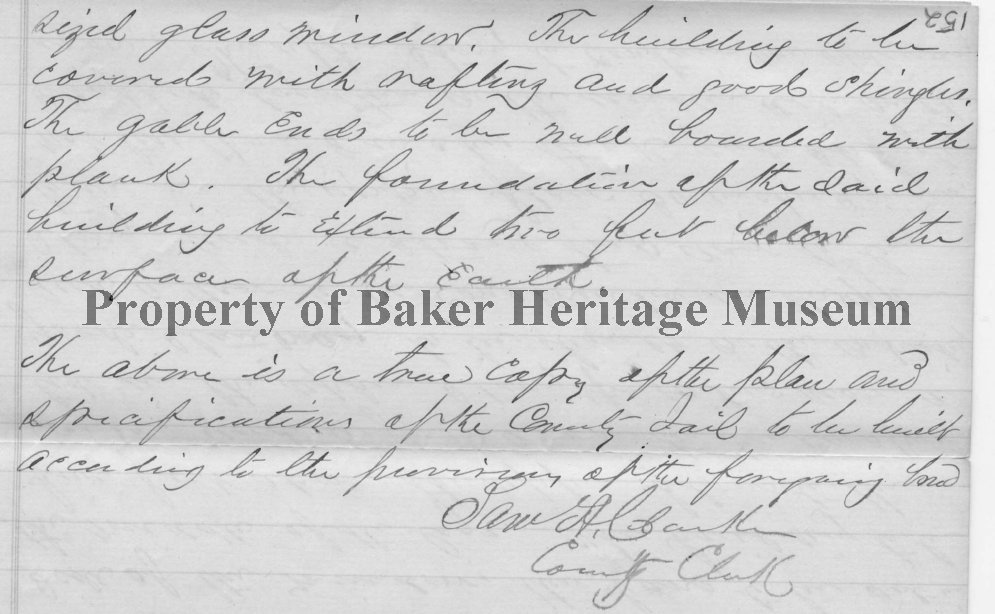 152
sized glass window. The building to be
covered with rafting and good shingles.
The gable Ends to be well boarded with
plank. The foundation of the said
building to Extend two feet below the
surface of the Earth.
Property of Baker Heritage Museum
The above is a true Copy of the plan and
specifications of the County Jail to be built
according to the provisions of the foregoing bond
Saml A. Clarke
County Clerk